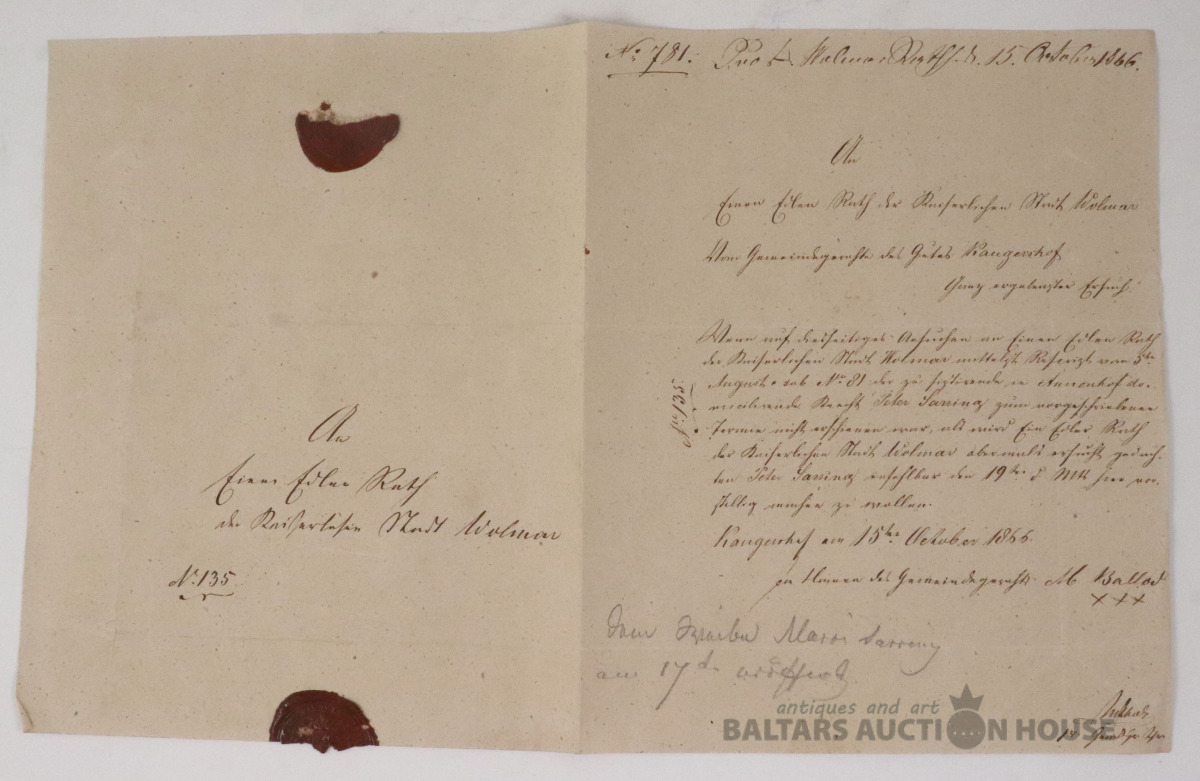 An
Einen Edlen Rath
der Kaiserlichen Stadt Wolmar
No. 135
No. 781. Wolmar Rathh. d. 15. October 1866.
An
Einen Edlen Rath der Kaiserlichen Stadt Wolmar
Vom Gemeindegerichte des Gutes Kaugershof
Ganz ergebenstes Ersuch.
No. 135.
Wenn auf diesseitiges Ansuchen an Einen Edlen Rath
der Kaiserlichen Stadt Wolmar mittelst Rescript vom 5ten
August sub No. 81 der zu sistirende in Annenhof do-
micilirende Knecht Peter Sarring zum vorgeschriebenen
Termin nicht erschienen war, als wird Ein Edler Rath
der Kaiserlichen Stadt Wolmar abermals ersucht gedach-
ten Peter Sarring unfehlbar den 19ten d Mts hier vor-
stellig machen zu wollen.
Kaugershof am 15ten October 1866.
Im Namen des Gemeindegerichts M Ballod
+++
Dem Marri Sarring
am 17t eröffnet
antiques and art
BALTARS AUCTION HOUSE